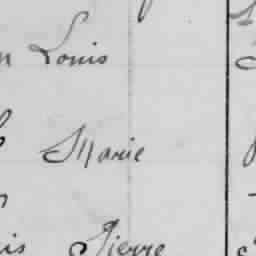 Louis
Marie
is Pierre